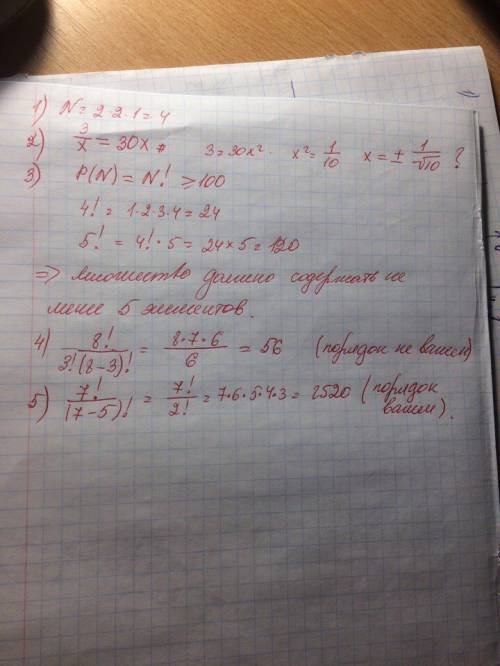 1) N = 2·2·1 = 4
2) 3/x = 30x. 3 = 30x². x² = 1/10 x = ± 1/√10 ?
3) P(N) = N! ⩾ 100
4! = 1·2·3·4 = 24
5! = 4!·5 = 24×5 = 120
=> множество должно содержать не
менее 5 элементов.
4) 8!/3!(8-3)! = 8·7·6/6 = 56 (порядок не важен)
5) 7!/(7-5)! = 7!/2! = 7·6·5·4·3 = 2520 (порядок
важен).